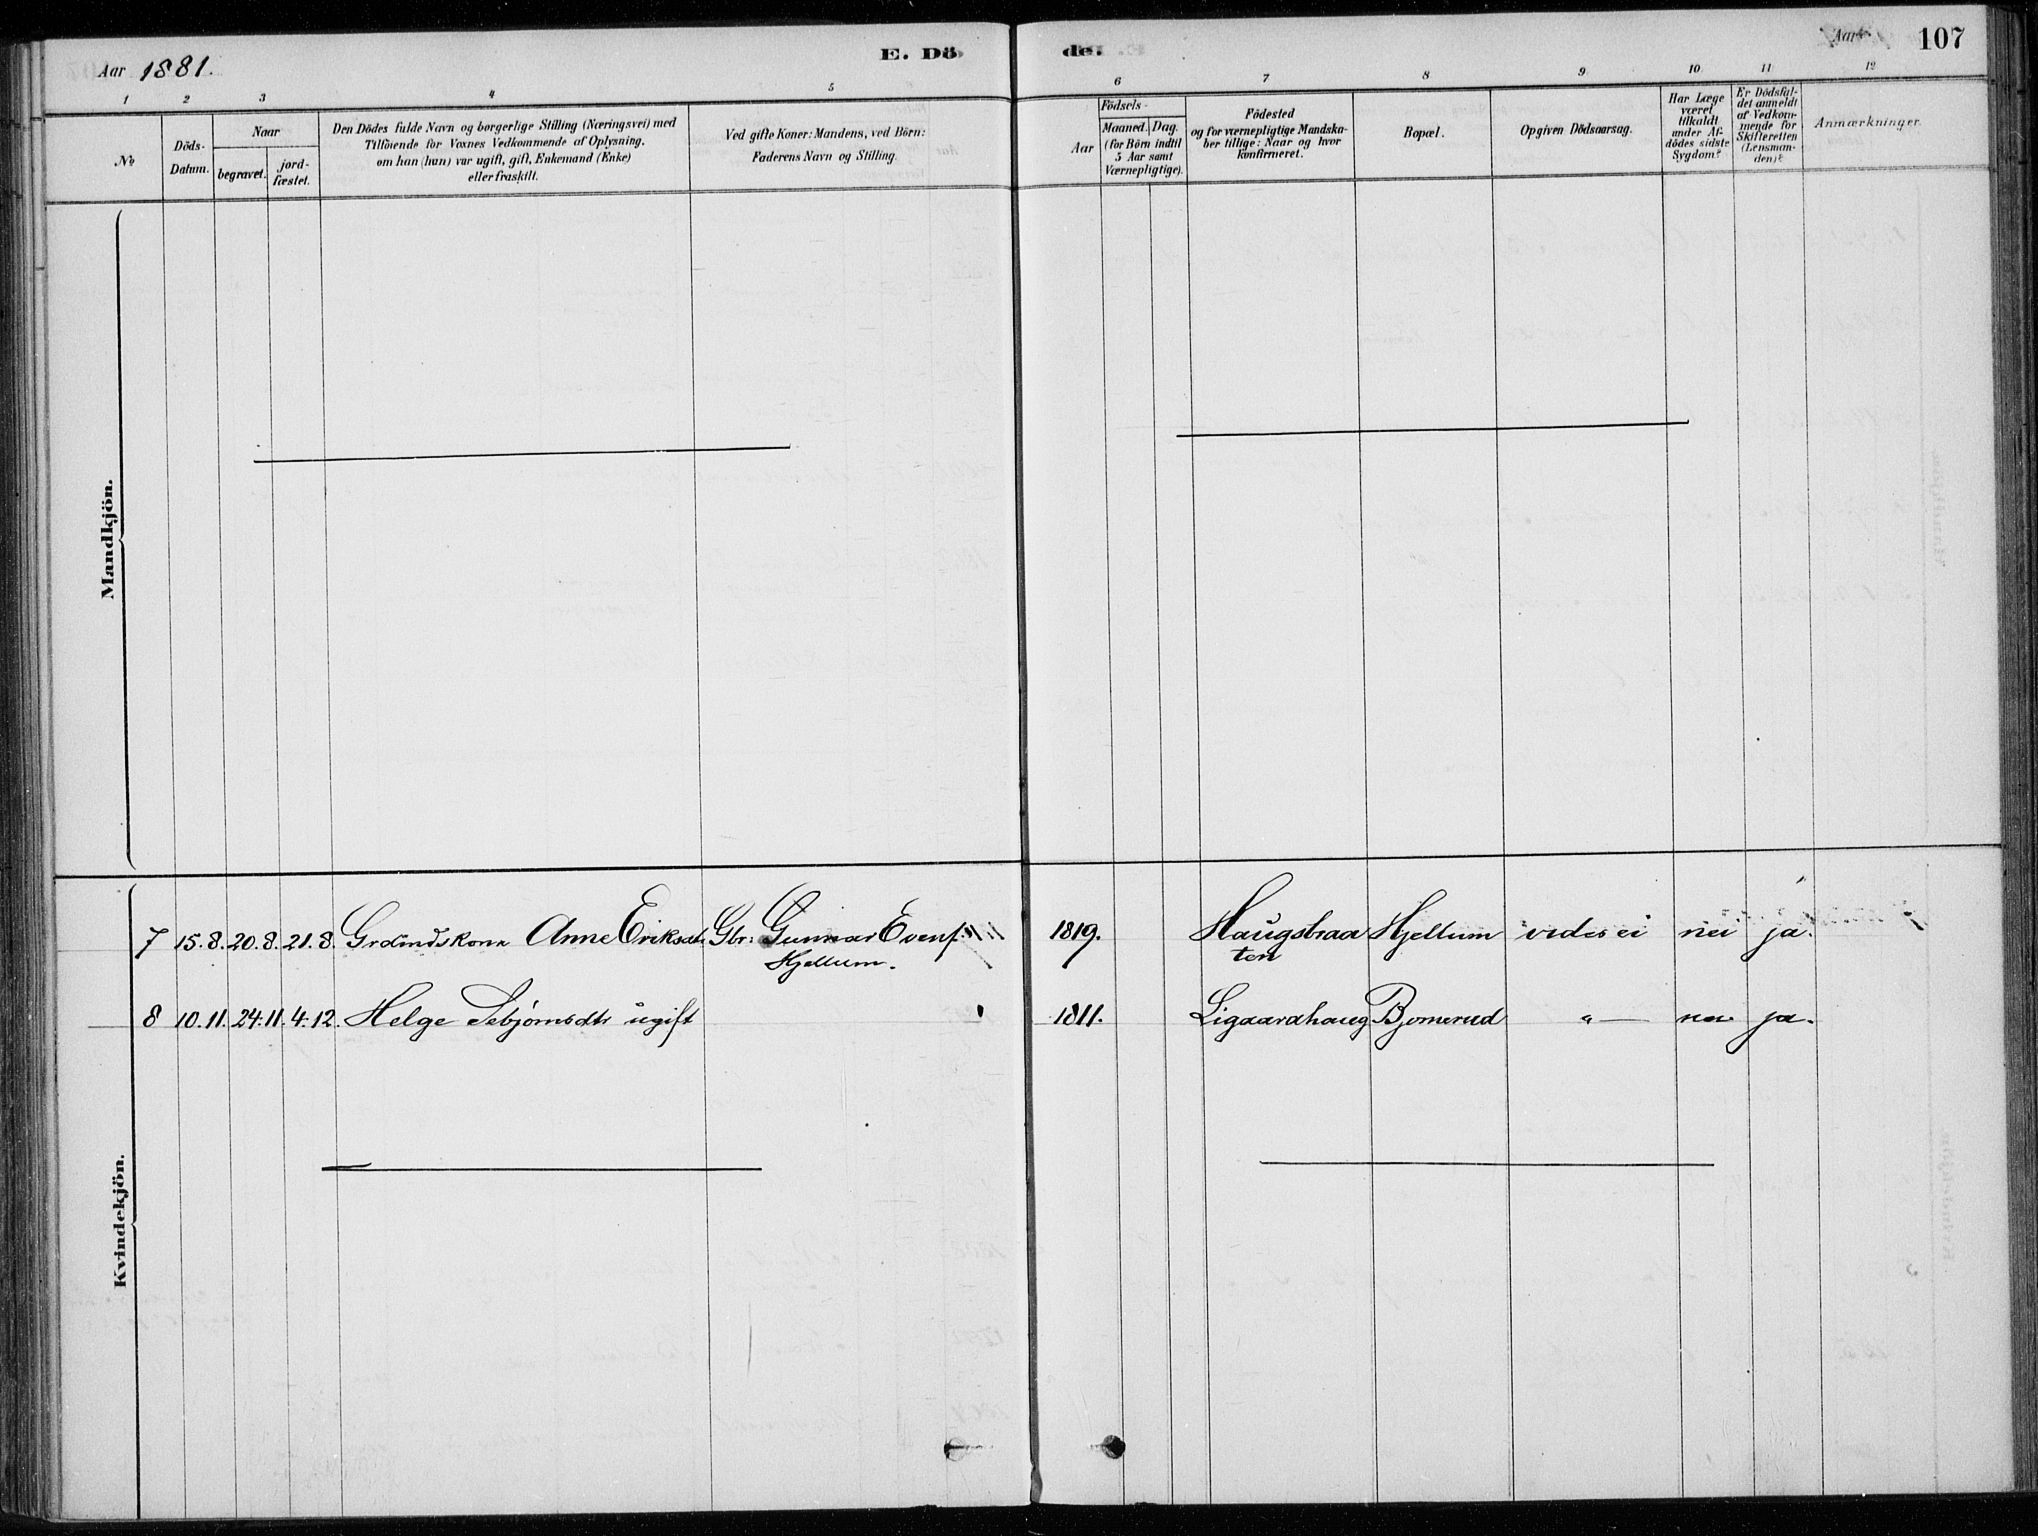 Aar 1881.
E. Dö
de.
Aar
107
1
2
3
4
5
6
7
8
9
10
11
12
No
Döds-
Datum.
Naar
begravet.
jord-
fæstet.
Den Dödes fulde Navn og borgerlige Stilling (Næringsvei) med
Tilföiende for Voxnes Vedkommende af Oplysning,
om han (hun) var ugift, gift, Enkemand (Enke)
eller fraskilt.
Ved gifte Koner: Mandens, ved Börn:
Faderens Navn og Stilling.
Födsels-
Aar
Maaned.
Dag.
(for Börn indtil
5 Aar samt
Værnepligtige).
Födested
og for værnepligtige Mandska-
ber tillige: Naar og hvor
konfirmeret.
Bopæl.
Opgiven Dödsaarsag.
Har Læge
været
tilkaldt
under Af-
dödes sidste
Sygdom?
Er Dödsfal-
det anmeldt
af Vedkom-
mende for
Skifteretten
(Lensman-
den)?
Anmærkninger.
Mandkjön.
7 15.8. 20.8. 21.8. Anne Eriksdtr Gbr: Gunnar Evens. 1819. Haugsbraa Hjellum vides ei nei ja.
Hjellum.
ten
8 10.11. 24.11. 4.12. Helge Sebjørnsdtr ugift 1811. Ligaardhaug Bjornerud "— nei ja.
Kvindekjön.